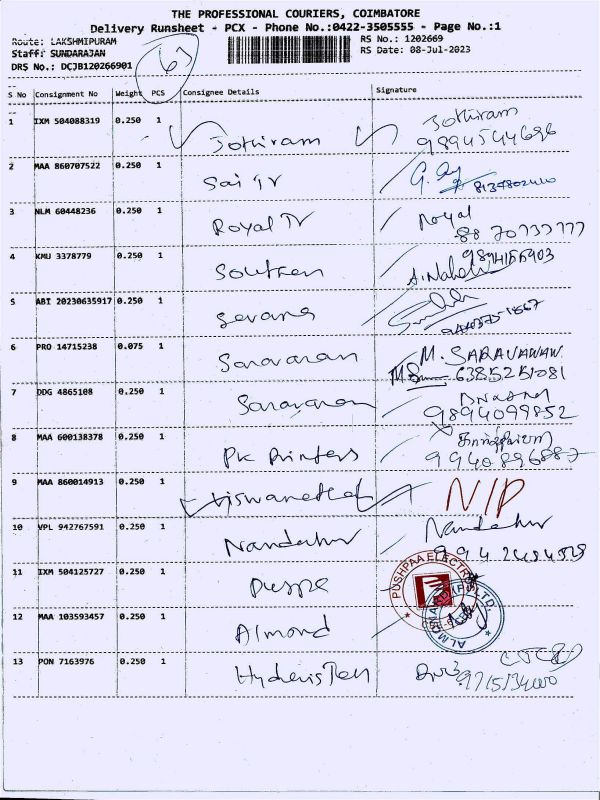 THE PROFESSIONAL COURIERS, COIMBATORE
Delivery Runsheet - PCX - Phone No.:0422-3505555 - Page No.:1
Route: LAKSHMIPURAM
RS No.: 1202669
Staff: SUNDARAJAN
RS Date: 08-Jul-2023
DRS No.: DCJB120266901
63
S No Consignment No Weight PCS Consignee Details Signature
1 IXM 504088319 0.250 1 Jothiram Jothiram
9894544696
2 MAA 860707522 0.250 1 Sai TV
3 NLM 60448236 0.250 1 Royal TV Royal
4 KMU 3378779 0.250 1 Southern
5 ABI 20230635917 0.250 1
6 PRO 14715238 0.075 1 Saravanan M. SARAVANAN
6385251081
7 DDG 4865108 0.250 1 Saravanan
9894099852
8 MAA 600138378 0.250 1 PK Printers
9940896887
9 MAA 860014913 0.250 1 N/P
10 VPL 942767591 0.250 1
11 IXM 504125727 0.250 1 PUSHPAA ELECTR
12 MAA 103593457 0.250 1 Almond
13 PON 7163976 0.250 1